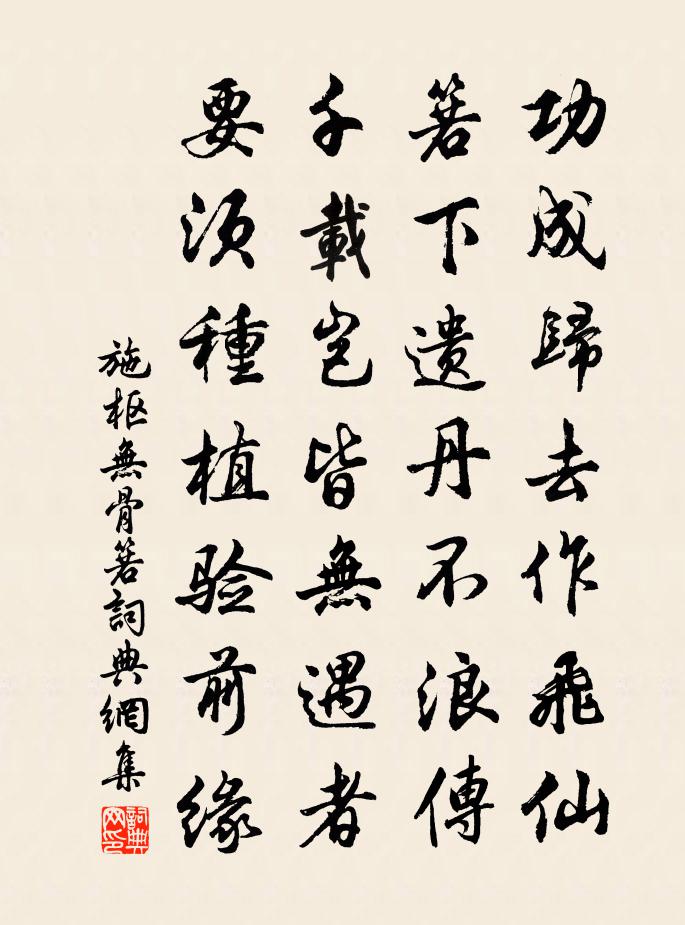 功成歸去作飛仙
箬下遗丹不浪傳
千載岂皆無遇者
要须種植验前缘
施枢無骨箬詞典網集
詞典網印